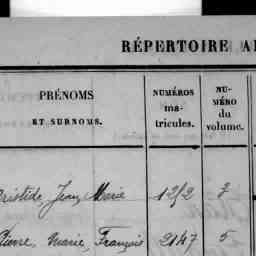 RÉPERTOIRE
PRÉNOMS
ET SURNOMS.
NUMÉROS
ma-
tricules.
NU-
MÉRO
du
volume.
Aristide, Jean, Marie 1212 7
Pierre, Marie, François 2147 5